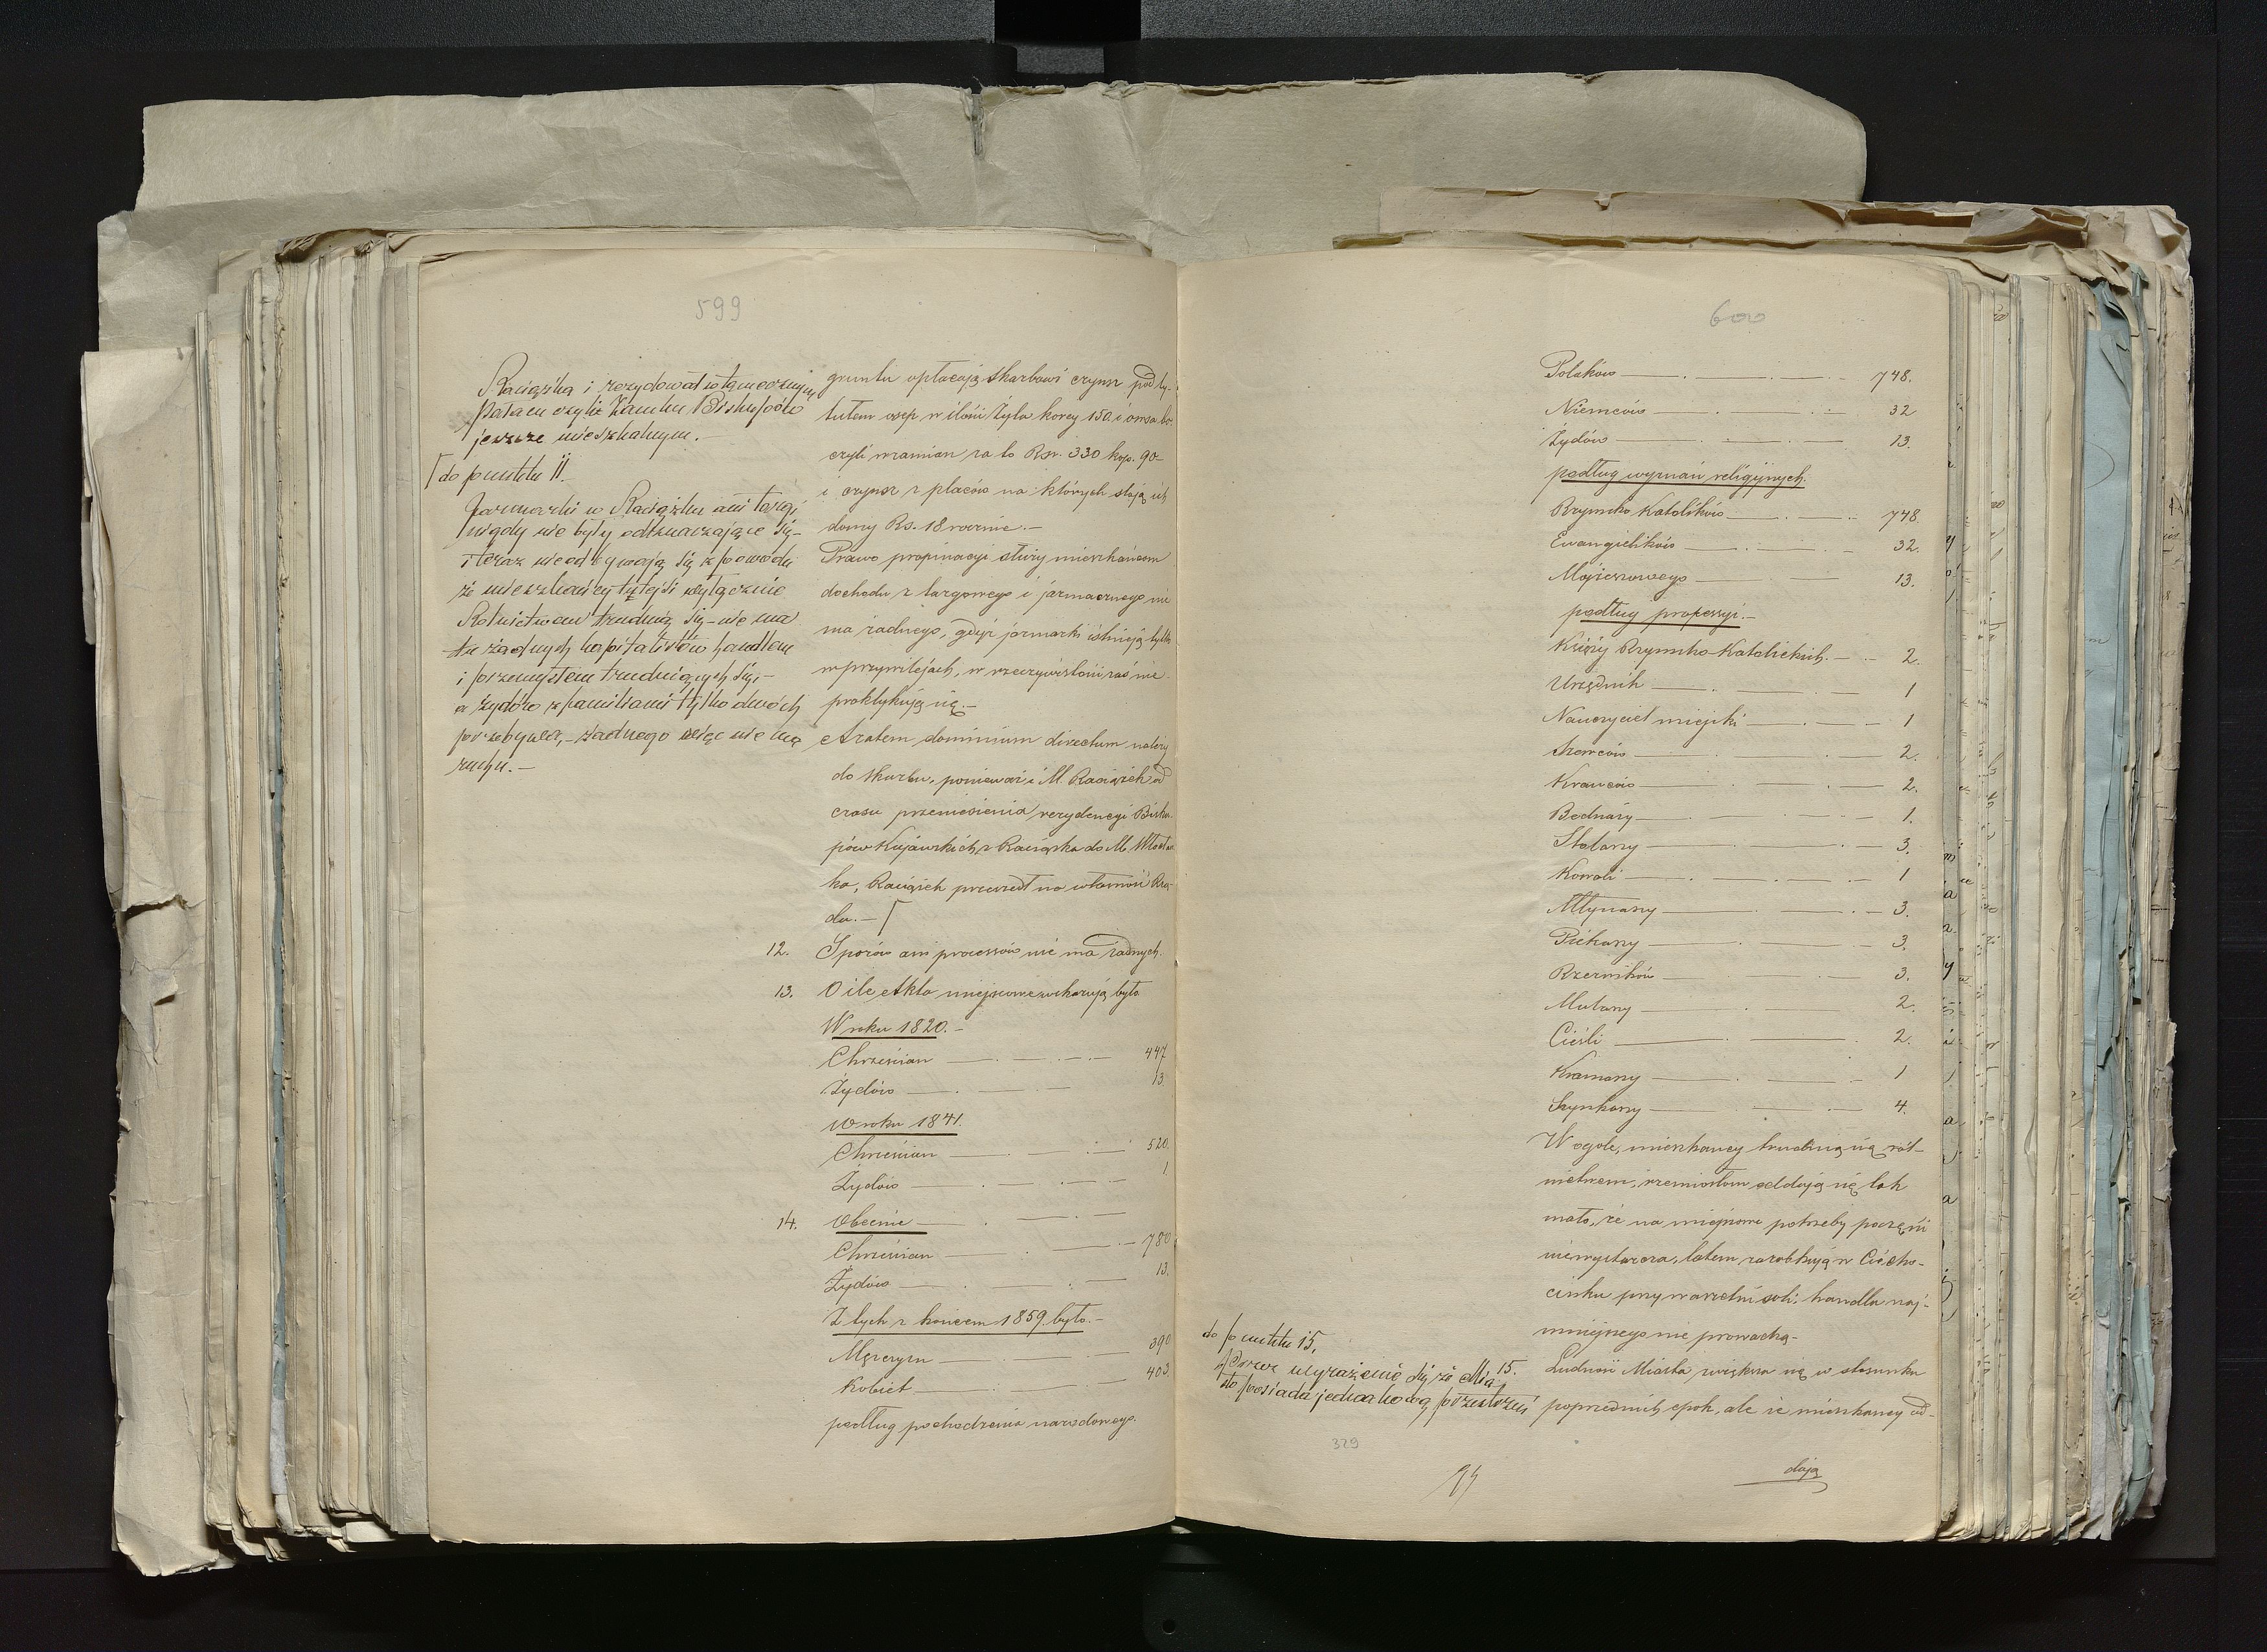 599
Raciążka i rezydował w tamecznym
Pałacu czyli Zamku Biskupów
jeszcze mieszkalnym.—
do punktu 11.
Jarmarki w Raciążku ani targi
nigdy nie były odznaczające się—
i teraz nieodbywają się z powodu
że mieszkańcy tutejsi wyłącznie
Rolnictwem trudnią się—nie ma
tu żadnych kapitalistów handlem
i przemysłem trudniących się,—
a żydów z familiami tylko dwóch
przebywa,—żadnego więc nie ma
ruchu.—
gruntu opłacają skarbowi czynsz pod ty-
tułem osep w ilości Żyta korcy 150. i owsa
czyli wzamian za to Rsr. 330 kop. 90—
i czynsz z placów na których stoją ich
domy Rs. 18 rocznie.—
Prawo propinacyi służy mieszkańcom
dochodu z targowego i jarmacznego nie
ma żadnego, gdyż jarmarki istnieją tylko
w przywilejach, w rzeczywistości zaś nie
praktykują się.—
Azatem dominium directum należy
do skarbu, ponieważ i M. Raciążek od
czasu przeniesienia rezydencyi Bisku-
pów Kujawskich z Raciążka do M. Włocław
ka, Raciążek przeszedł na własność Rzą-
du.—
12. Sporów ani processów nie ma żadnych.
13. O ile Akta miejscowe wskazują było
W roku 1820.—
Chrześcian — 447
Żydów — 13.
W roku 1841.
Chrześcian — 520.
Żydów — 1.
14. Obecnie —
Chrześcian — 780
Żydów — 13.
Z tych z końcem 1859. było.—
Męzczyzn — 390
Kobiet — 403.
podług pochodzenia narodowego.
600
Polaków — 748.
Niemców — 32
Żydów — 13.
podług wyznań religijnych.
Rzymsko Katolików — 748
Ewangielików — 32.
Mojżeszowego — 13.
podług professyi.—
Księży Rzymsko-Katolickich.— 2.
Urzędnik — 1
Nauczyciel miejski — 1
Szewców — 2.
Krawców — 2.
Bednarzy — 1.
Stolarzy — 3.
Kowali — 1
Młynarzy — 3.
Piekarzy — 3.
Rzezników — 3.
Mularzy — 2.
Cieśli — 2.
Kramarzy — 1
Szynkarzy — 4.
W ogóle, mieszkańcy trudnią się rol-
nictwem, rzemiosłom oddają się tak
mało, że na miejscowe potrzeby po części
niewystarcza, latem zarobkują w Ciecho-
cinku przy warzelni soli; handlu naj-
mniejszego nie prowadzą—
do punktu 15.
Przez wyrażenie się że Mia-
sto posiada jednakową przestrzeń
15. Ludność Miasta zwiększa się w stosunku
poprzednich epok, ale że mieszkańcy od-
dają
329